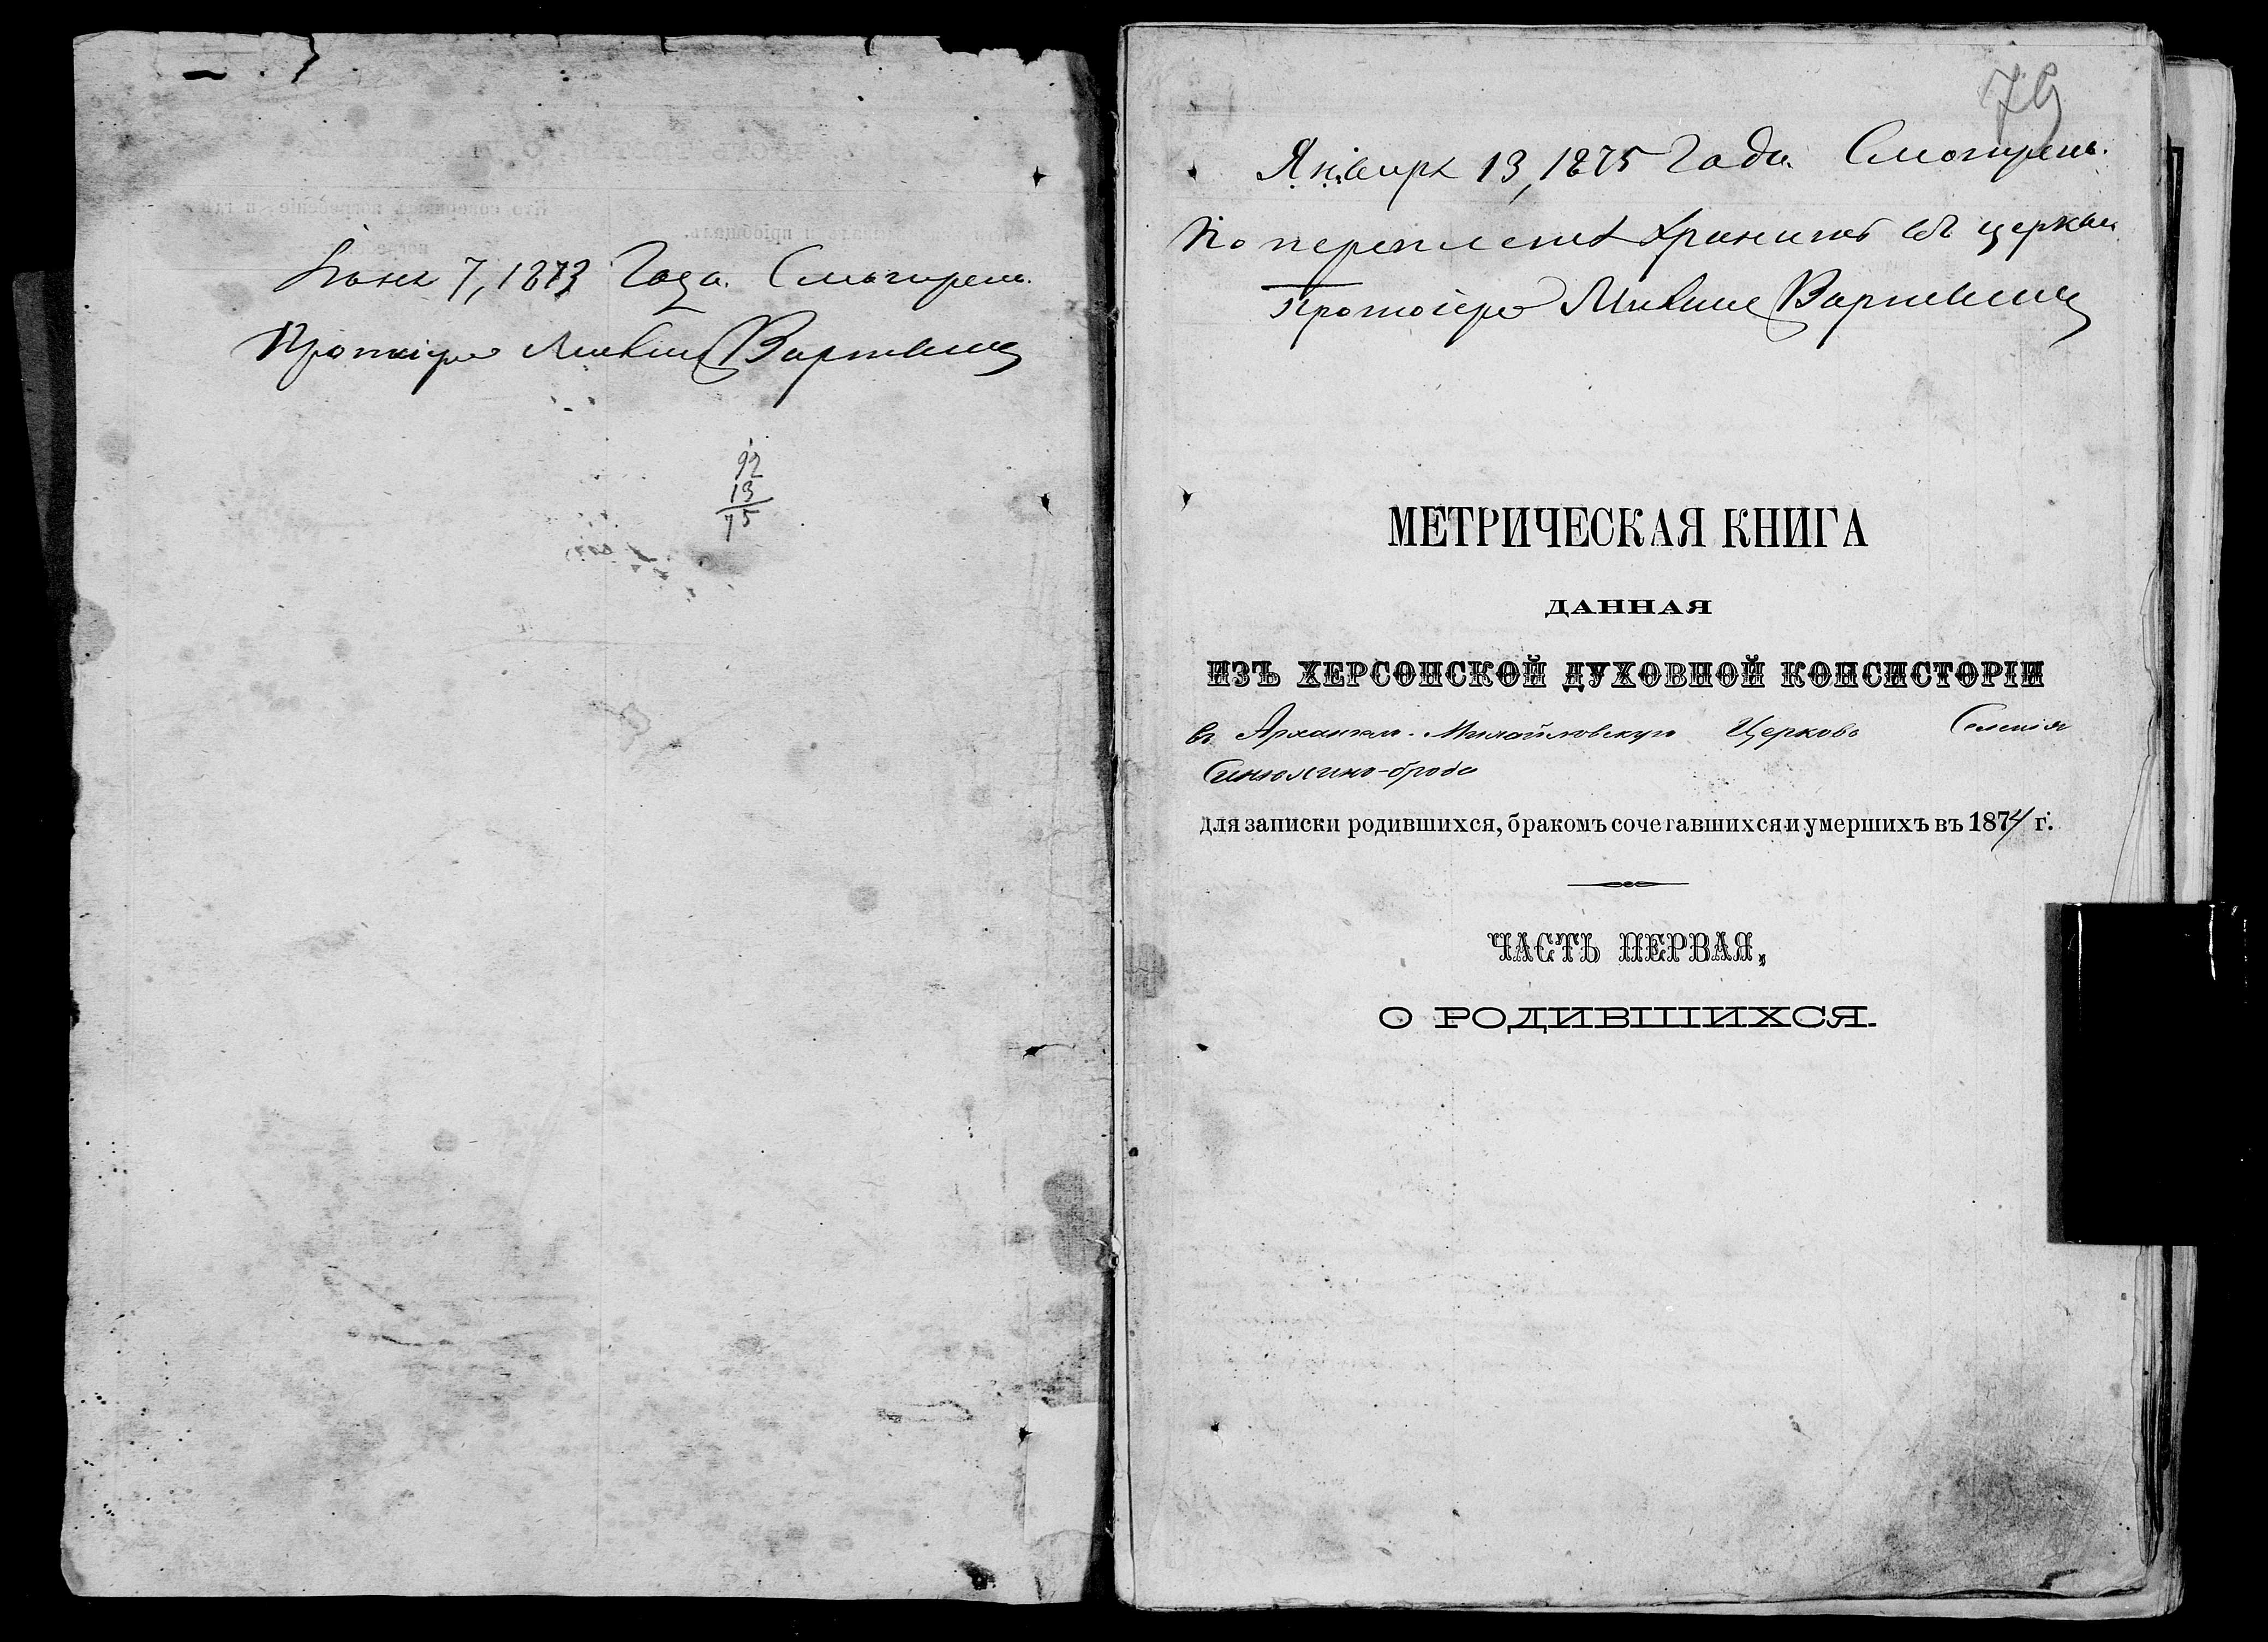 7, 1873 Года. Смотрелъ.
Протоіерей Варшавиц
92
13
75
79
Января 13, 1875 Года. Смотрелъ.
По переплетѣ хранить въ церкви
Протоіерей
МЕТРИЧЕСКАЯ КНИГА
ДАННАЯ
ИЗЪ ХЕРСОНСКОЙ ДУХОВНОЙ КОНСИСТОРІИ
въ Архангело-Михайловскую Церковь Селенія
Синюхино-брода
для записки родившихся, бракомъ сочетавшихся и умершихъ въ 1874 г.
ЧАСТЬ ПЕРВАЯ,
О РОДИВШИХСЯ.